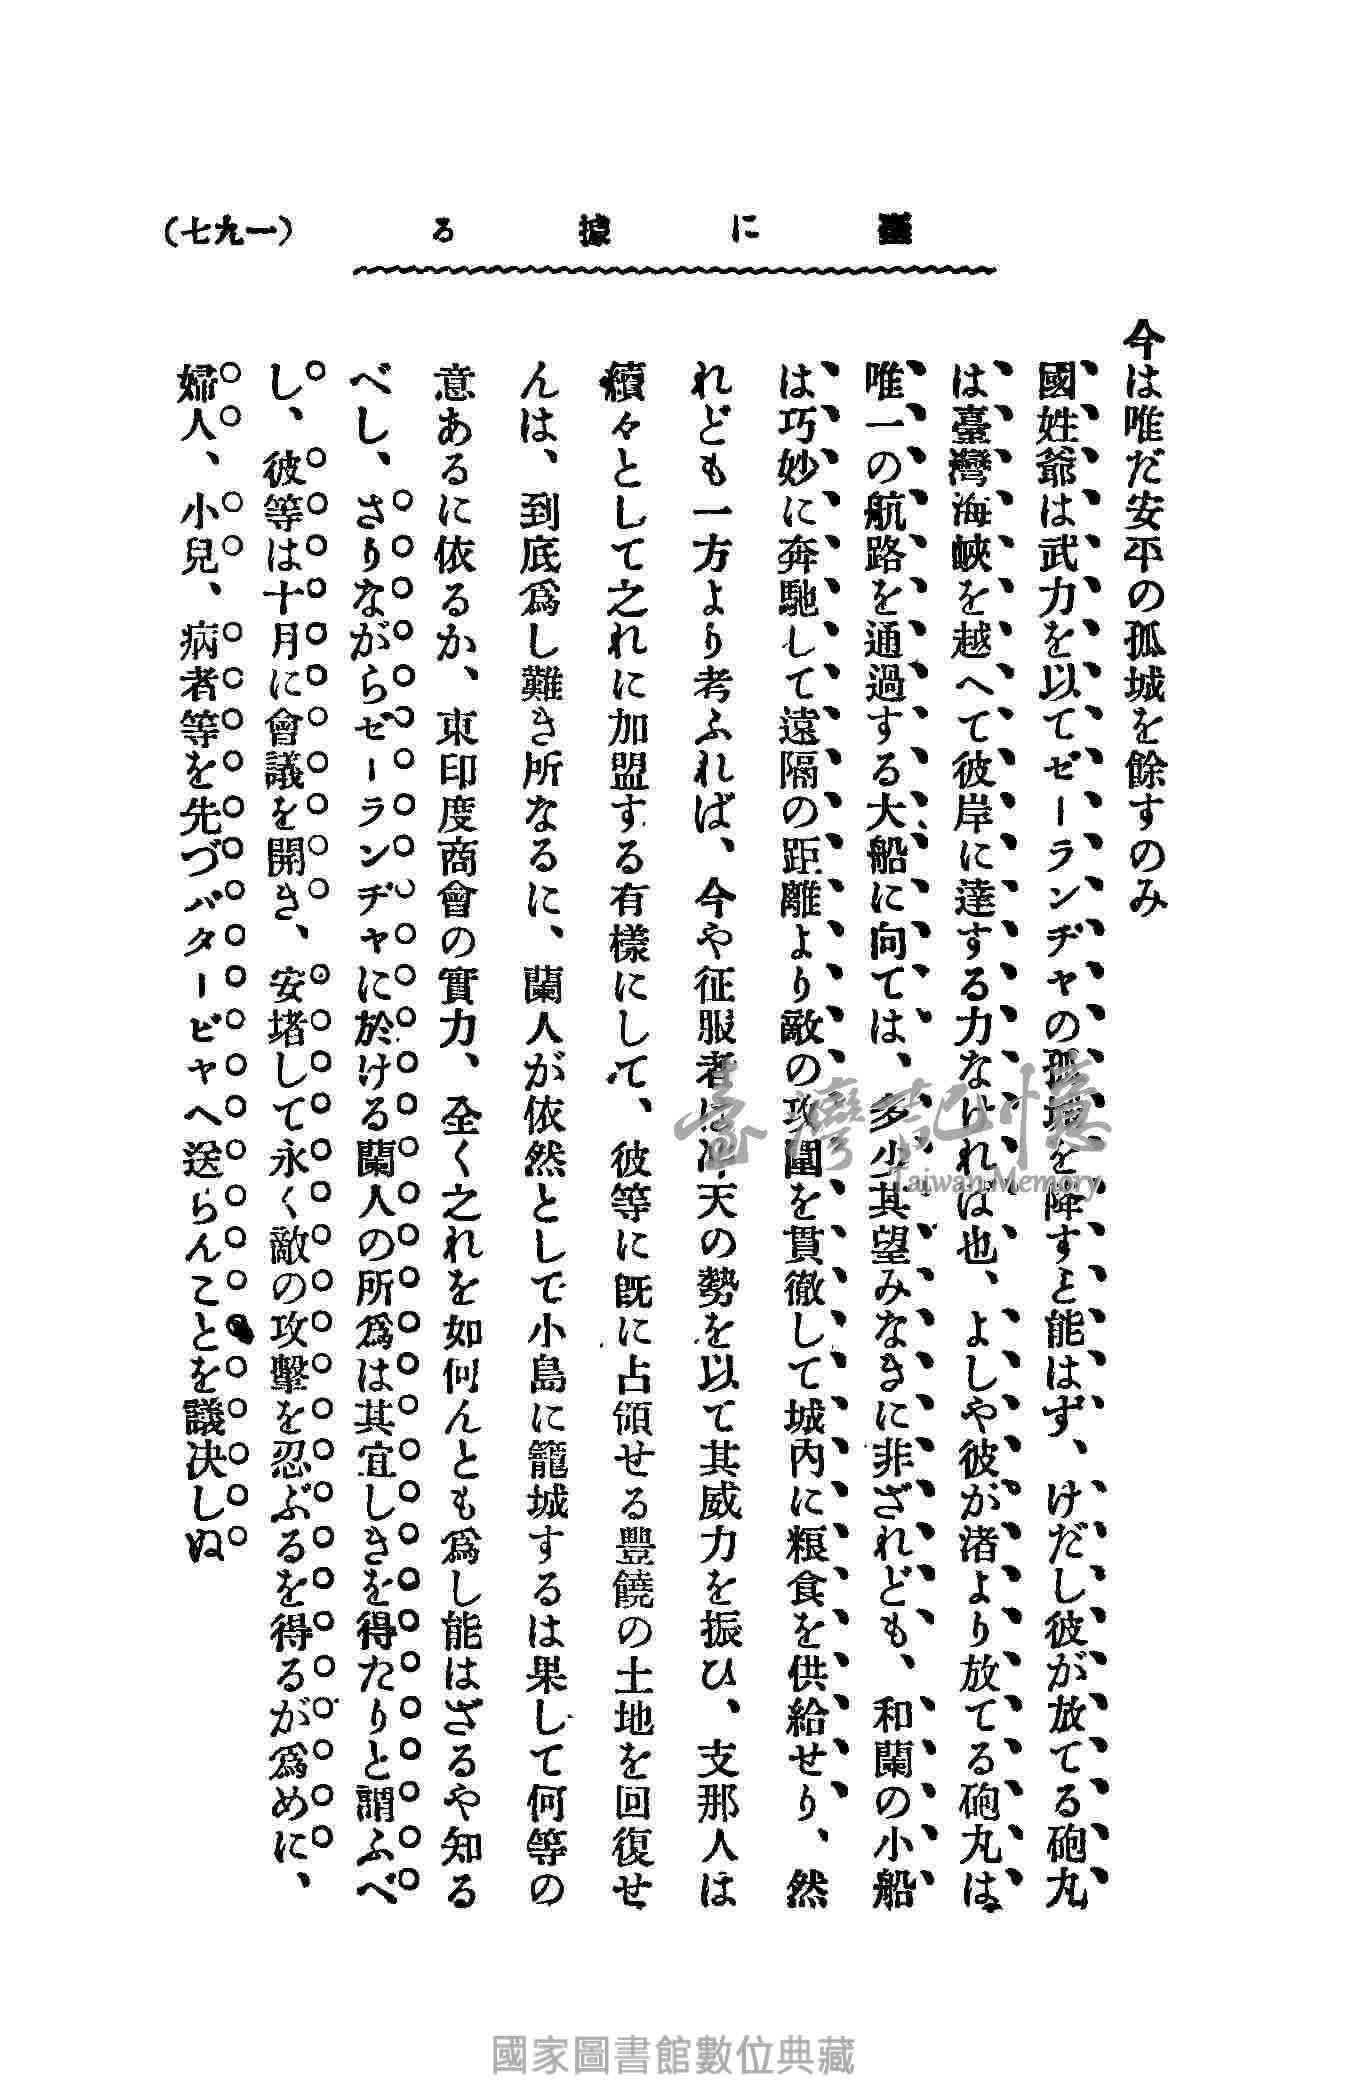 臺に據る
(一九七)
今は唯だ安平の孤城を餘すのみ
國姓爺は武力を以てゼーランヂヤの孤城を降すこと能はず、けだし彼が放てる砲丸
は臺灣海峽を越へて彼岸に達する力なければ也、よしや彼が渚より放てる砲丸は
唯一の航路を通過する大船に向ては、多少其望みなきに非ざれども、和蘭の小船
は巧妙に奔馳して遠隔の距離より敵の攻圍を貫徹して城内に粮食を供給せり、然
れども一方より考ふれば、今や征服者は冲天の勢を以て其威力を振ひ、支那人は
續々として之れに加盟する有樣にして、彼等に既に占領せる豐饒の土地を回復せ
んは、到底爲し難き所なるに、蘭人が依然としで小島に籠城するは果して何等の
意あるに依るか、東印度商會の實力、全く之れを如何んとも爲し能はざるや知る
べし、さりながらゼーランヂャに於ける蘭人の所爲は其宜しきを得たりと謂ふべ
し、彼等は十月に會議を開き、安堵して永く敵の攻擊を忍ぶるを得るが爲めに、
婦人、小兒、病者等を先づバタービャへ送らんことを議决しぬ
臺灣記憶
Taiwan Memory
國家圖書館數位典藏